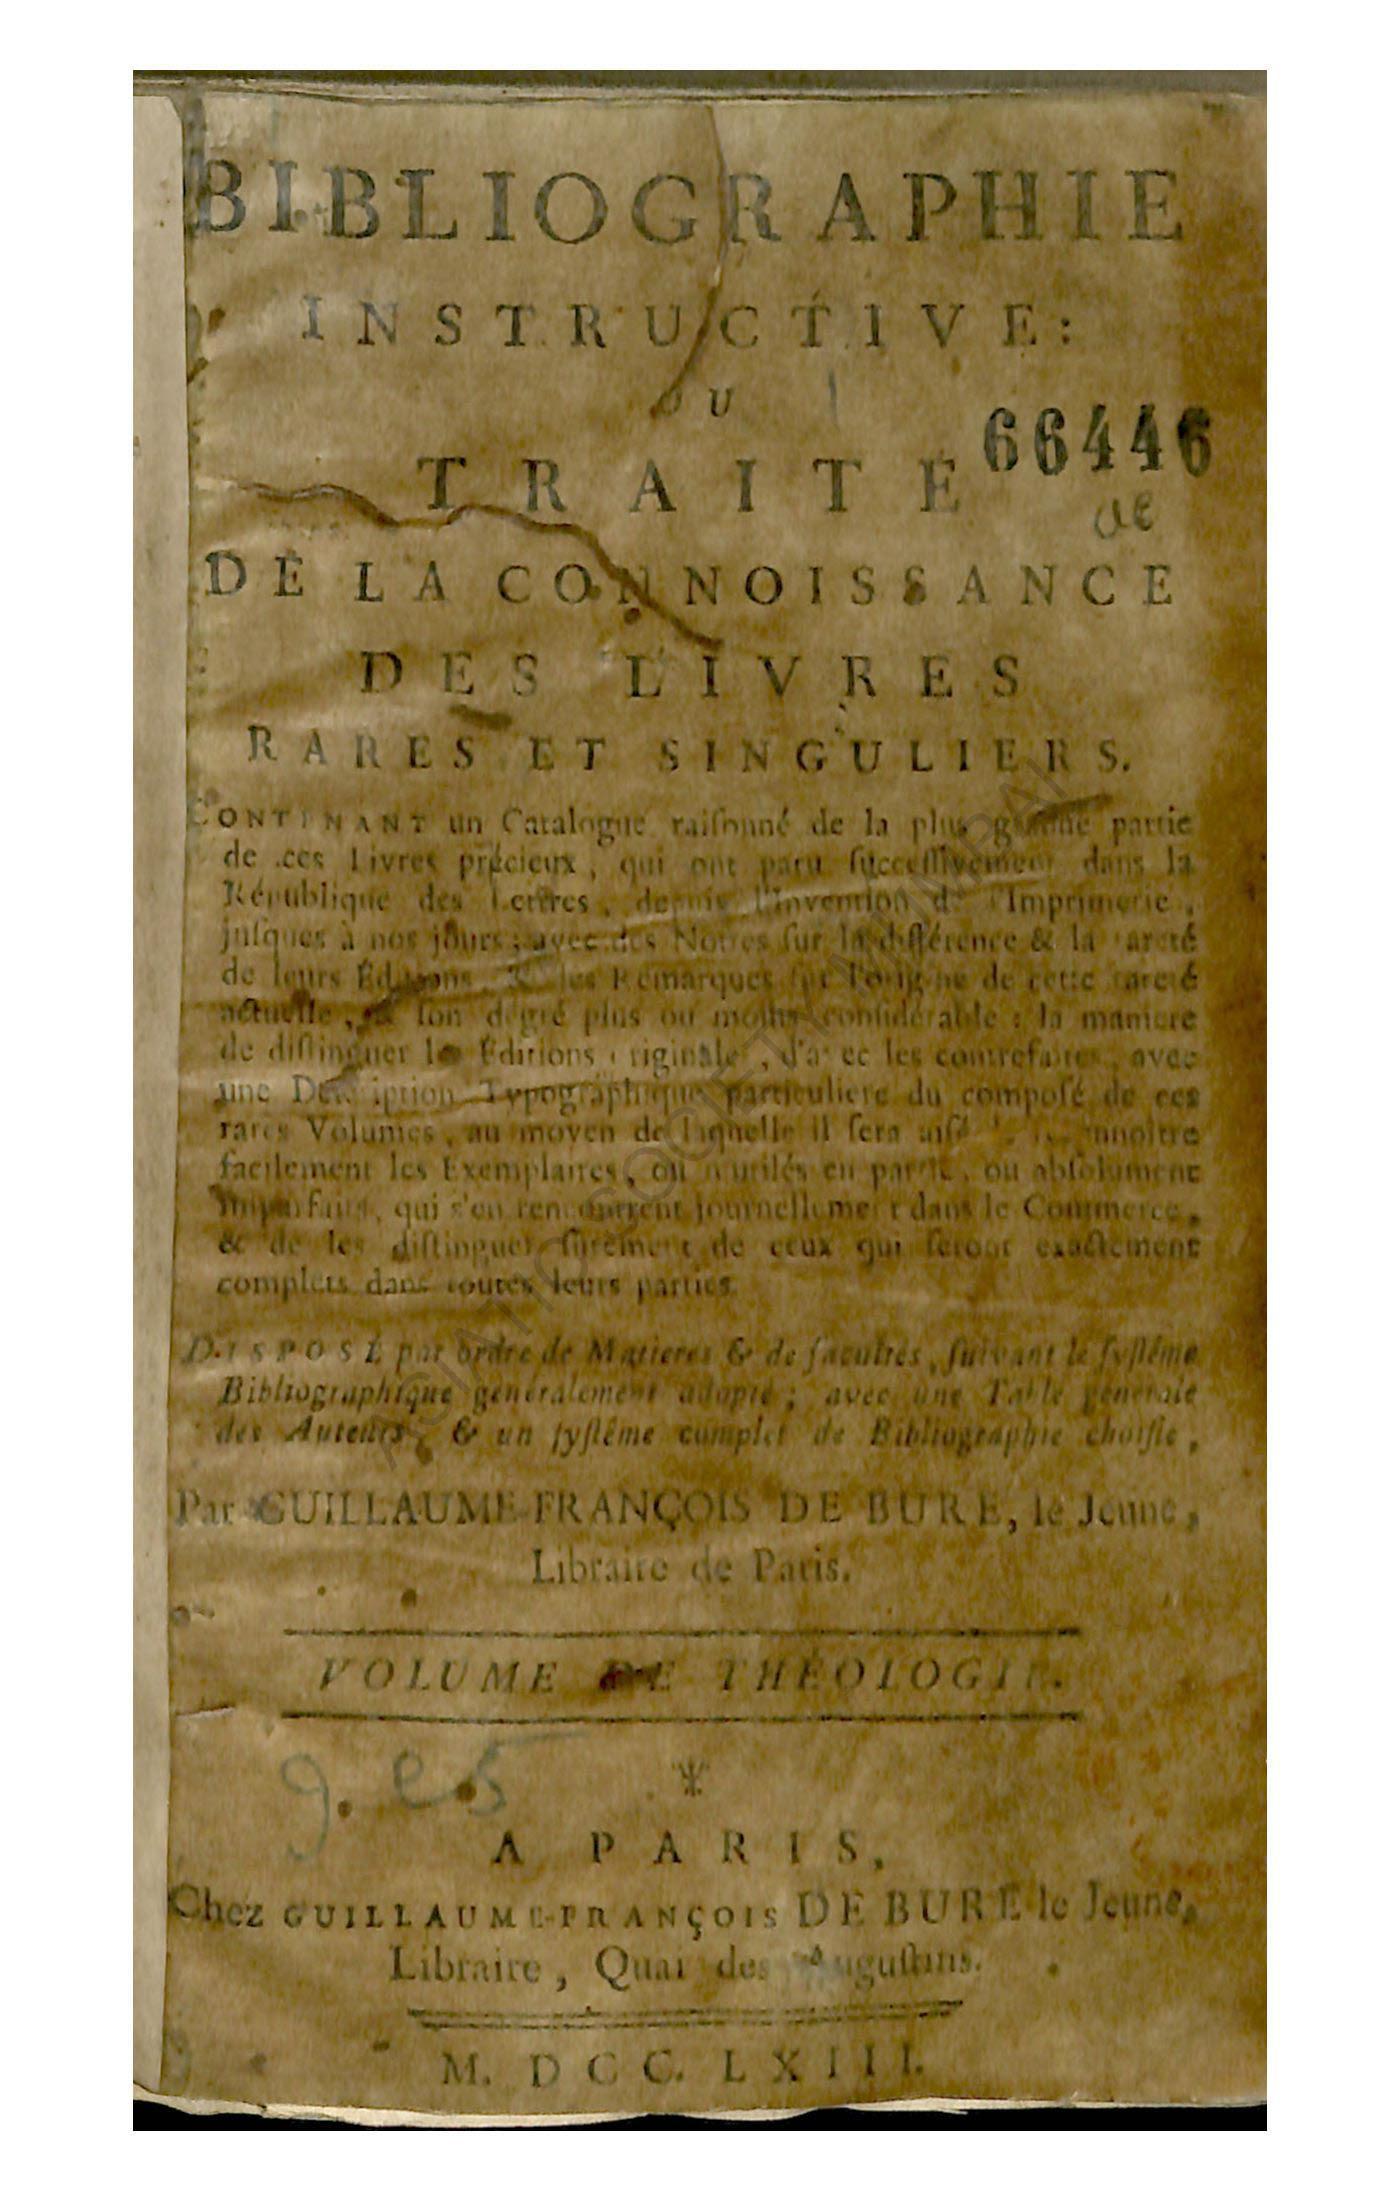 BIBLIOGRAPHIE
INSTRUCTIVE:
OU
TRAITÉ
66446
DE LA CONNOISSANCE
DES LIVRES
RARES ET SINGULIERS.
CONTENANT un Catalogue raiſonné de la plus grande partie
de ces Livres précieux, qui ont paru ſucceſſivement dans la
République des Lettres, depuis l'Invention de l'Imprimerie,
juſques à nos jours; avec des Nottes ſur la différence & la rareté
de leurs Éditions, & des Remarques ſur l'origine de cette rareté
actuelle, & ſon dégré plus ou moins conſidérable: la maniere
de diſtinguer les Éditions originales, d'avec les contrefaites; avec
une Deſcription Typographique particuliere du compoſé de ces
rares Volumes, au moyen de laquelle il ſera aiſé de reconnoître
facilement les Exemplaires, ou mutilés en partie, ou abſolument
imparfaits, qui s'en rencontrent journellement dans le Commerce,
& de les diſtinguer ſûrement de ceux qui ſeront exactement
complets dans toutes leurs parties.
DISPOSÉ par ordre de Matieres & de facultés, ſuivant le ſyſtême
Bibliographique généralement adopté; avec une Table générale
des Auteurs, & un ſyſtême complet de Bibliographie choiſie,
Par GUILLAUME-FRANÇOIS DE BURE, le Jeune,
Libraire de Paris.
VOLUME DE THÉOLOGIE.
A PARIS,
Chez GUILLAUME-FRANÇOIS DE BURE le Jeune,
Libraire, Quai des Auguſtins.
M. DCC. LXIII.
ASIATIC SOCIETY MUMBAI